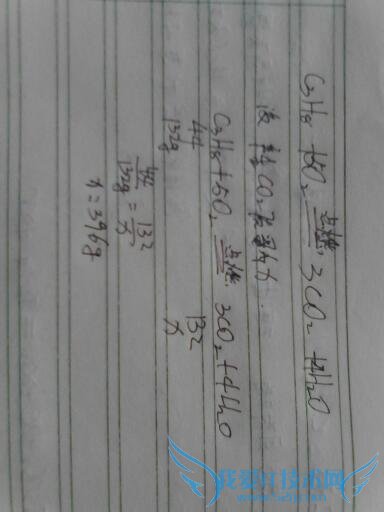 C₃H₈ + 5O₂ 点燃 3CO₂ + 4H₂O
设 CO₂ 质量为 x.
C₃H₈ + 5O₂ 点燃 3CO₂ + 4H₂O
44 132
132g x
44/132g = 132/x
x = 396g
我爱IT技术网
www.52ij.com